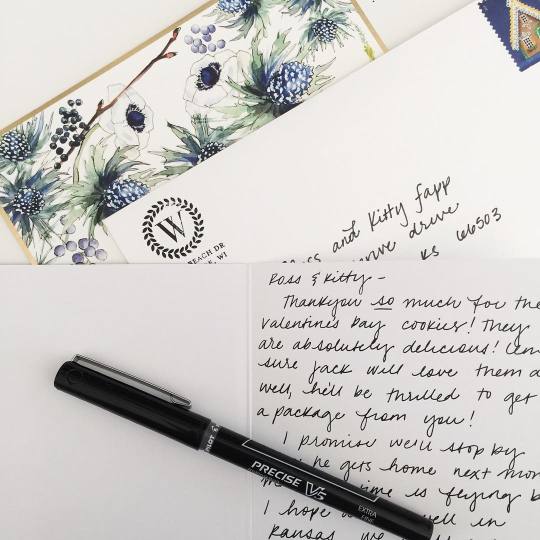 W
BEACH DR
WI
and Kitty Fapp
drive
KS 66503
Ross & Kitty -
Thankyou so much for the
Valentines Day cookies! They
are absolutely delicious!
sure Jack will love them a
well, he'll be thrilled to get
a package from you!
I promise we'll stop by
he gets home next mon
me is flying b
I hope well in
Kansas, we
PILOT
PRECISE V5
EXTRA
FINE